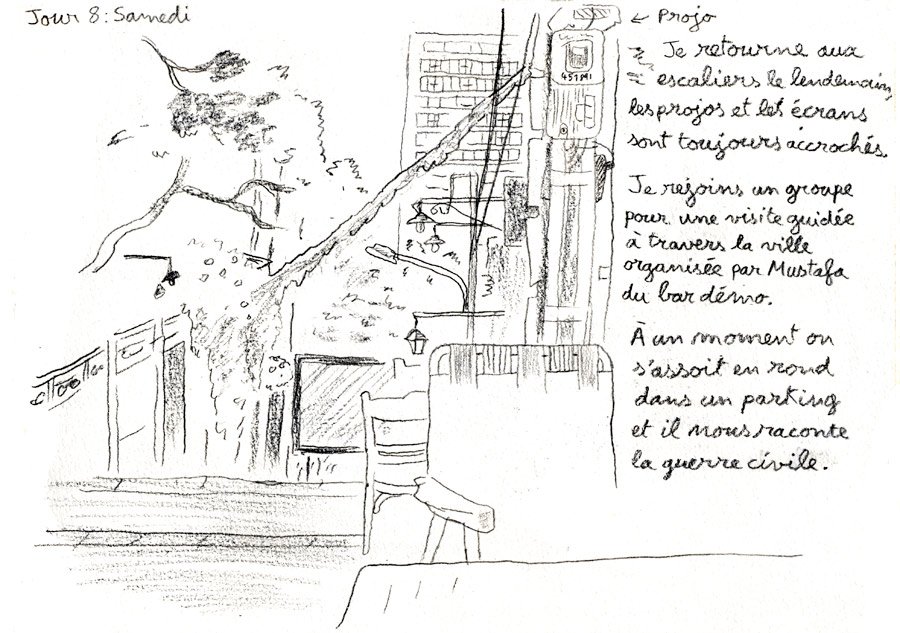 Jour 8 : Samedi
← Projo
451MI
Je retourne aux
escaliers le lendemain,
les projos et les écrans
sont toujours accrochés.
Je rejoins un groupe
pour une visite guidée
à travers la ville
organisée par Mustafa
du bar démo.
À un moment on
s'assoit en rond
dans un parking
et il nous raconte
la guerre civile.